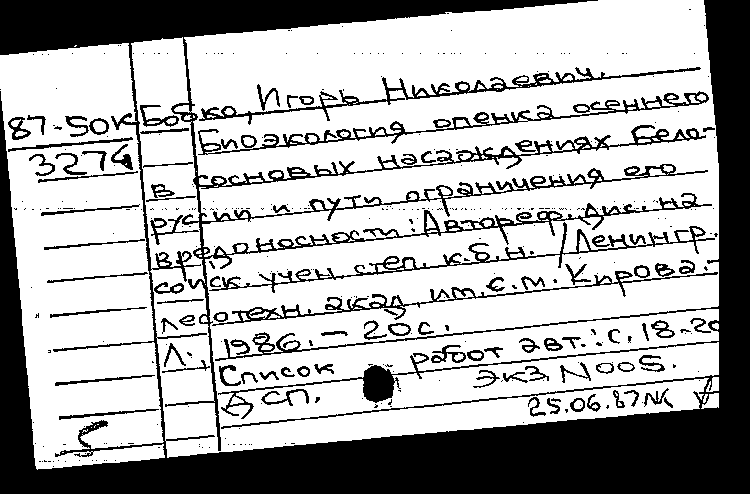 87-50К Бобко, Игорь Николаевич.
3274 Биоэкология опенка осеннего
в сосновых насаждениях Бело-
руссии и пути ограничения его
вредоносности: Автореф. дис. на
соиск. учен. степ. к.б.н. /Ленингр.
лесотехн. акад. им. С.М. Кирова.-
Л., 1986. - 20 с.
Список работ авт.: с. 18-20
ДСП. экз. N005.
25.06.87